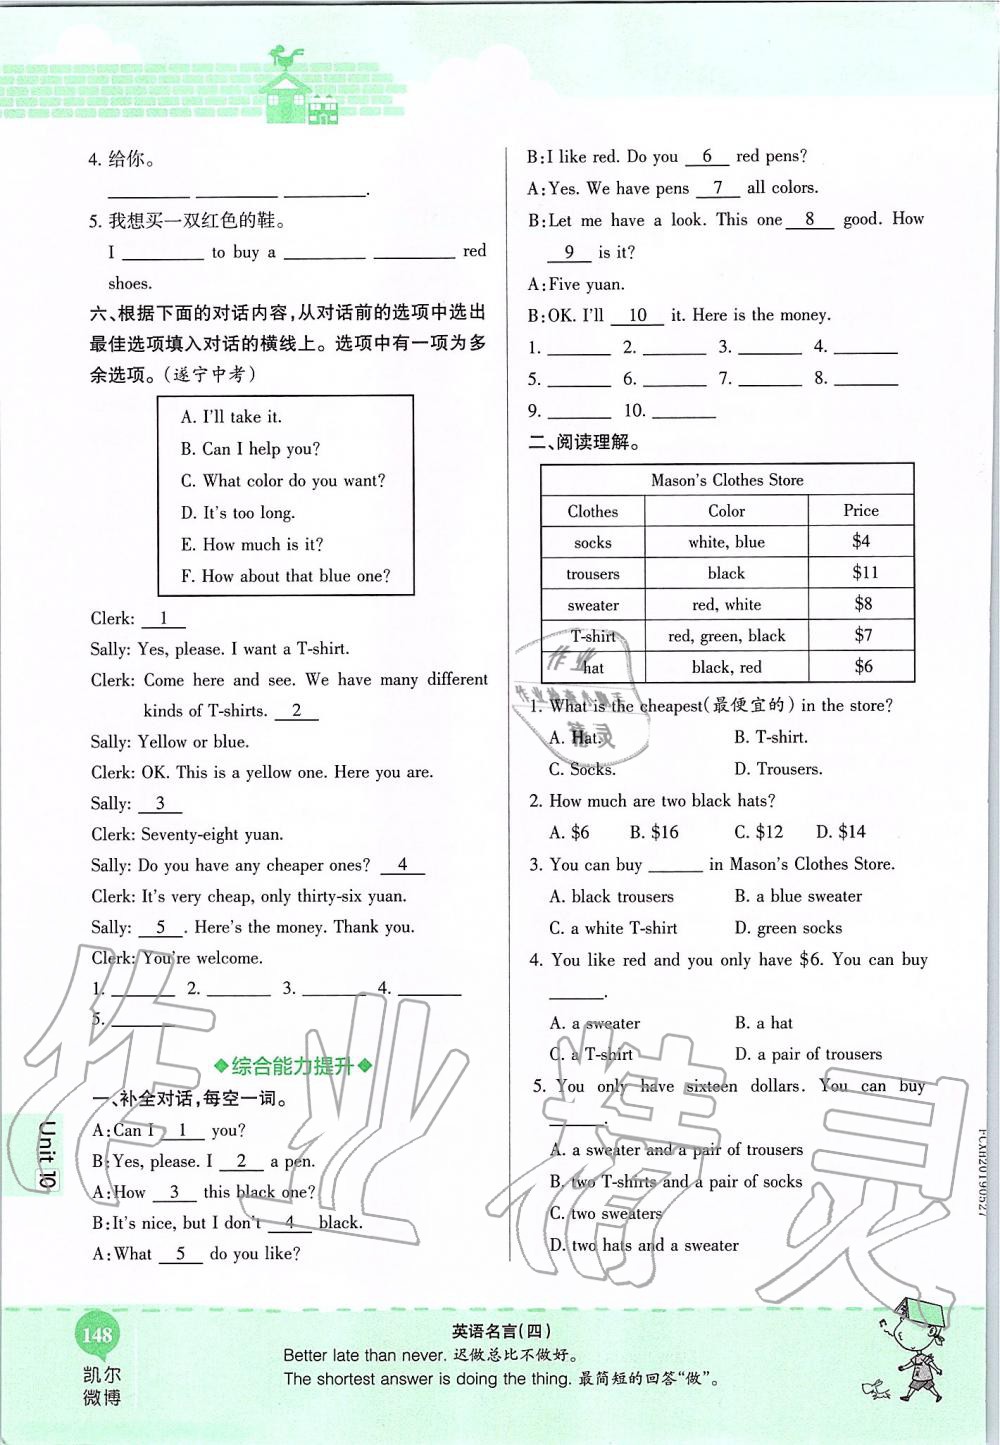 4. 给你。
________ ________ ________.
5. 我想买一双红色的鞋。
I ________ to buy a ________ ________ red
shoes.
六、根据下面的对话内容,从对话前的选项中选出
最佳选项填入对话的横线上。选项中有一项为多
余选项。(遂宁中考)
A. I'll take it.
B. Can I help you?
C. What color do you want?
D. It's too long.
E. How much is it?
F. How about that blue one?
Clerk: 1
Sally: Yes, please. I want a T-shirt.
Clerk: Come here and see. We have many different
kinds of T-shirts. 2
Sally: Yellow or blue.
Clerk: OK. This is a yellow one. Here you are.
Sally: 3
Clerk: Seventy-eight yuan.
Sally: Do you have any cheaper ones? 4
Clerk: It's very cheap, only thirty-six yuan.
Sally: 5 . Here's the money. Thank you.
Clerk: You're welcome.
1. ______ 2. ______ 3. ______ 4. ______
5. ______
综合能力提升
一、补全对话,每空一词。
A:Can I 1 you?
B:Yes, please. I 2 a pen.
A:How 3 this black one?
B:It's nice, but I don't 4 black.
A:What 5 do you like?
B:I like red. Do you 6 red pens?
A:Yes. We have pens 7 all colors.
B:Let me have a look. This one 8 good. How
9 is it?
A:Five yuan.
B:OK. I'll 10 it. Here is the money.
1. ______ 2. ______ 3. ______ 4. ______
5. ______ 6. ______ 7. ______ 8. ______
9. ______ 10. ______
二、阅读理解。
Mason's Clothes Store
Clothes Color Price
socks white, blue $4
trousers black $11
sweater red, white $8
T-shirt red, green, black $7
hat black, red $6
1. What is the cheapest(最便宜的) in the store?
A. Hat. B. T-shirt.
C. Socks. D. Trousers.
2. How much are two black hats?
A. $6 B. $16 C. $12 D. $14
3. You can buy ______ in Mason's Clothes Store.
A. black trousers B. a blue sweater
C. a white T-shirt D. green socks
4. You like red and you only have $6. You can buy
______.
A. a sweater B. a hat
C. a T-shirt D. a pair of trousers
5. You only have sixteen dollars. You can buy
______.
A. a sweater and a pair of trousers
B. two T-shirts and a pair of socks
C. two sweaters
D. two hats and a sweater
Unit 10
148
凯尔
微博
英语名言(四)
Better late than never. 迟做总比不做好。
The shortest answer is doing the thing. 最简短的回答“做”。
作业精灵